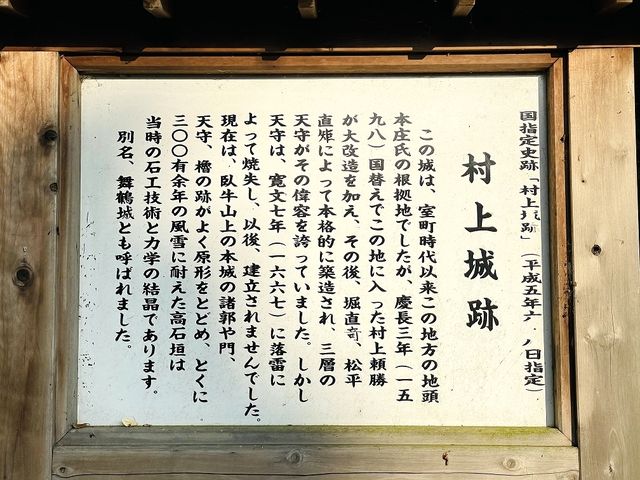 国指定史跡「村上 跡」（平成五年六 八日指定）
村上城跡
この城は、室町時代以来この地方の地頭
本庄氏の根拠地でしたが、慶長三年（一五
九八）国替えでこの地に入った村上頼勝
が大改造を加え、その後、堀直竒、松平
直矩によって本格的に築造され、三層の
天守がその偉容を誇っていました。しかし
天守は、寛文七年（一六六七）に落雷に
よって焼失し、以後、建立されませんでした。
現在は、臥牛山上の本城の諸郭や門、
天守、櫓の跡がよく原形をとどめ、とくに
三〇〇有余年の風雪に耐えた高石垣は
当時の石工技術と力学の結晶であります。
別名、舞鶴城とも呼ばれました。